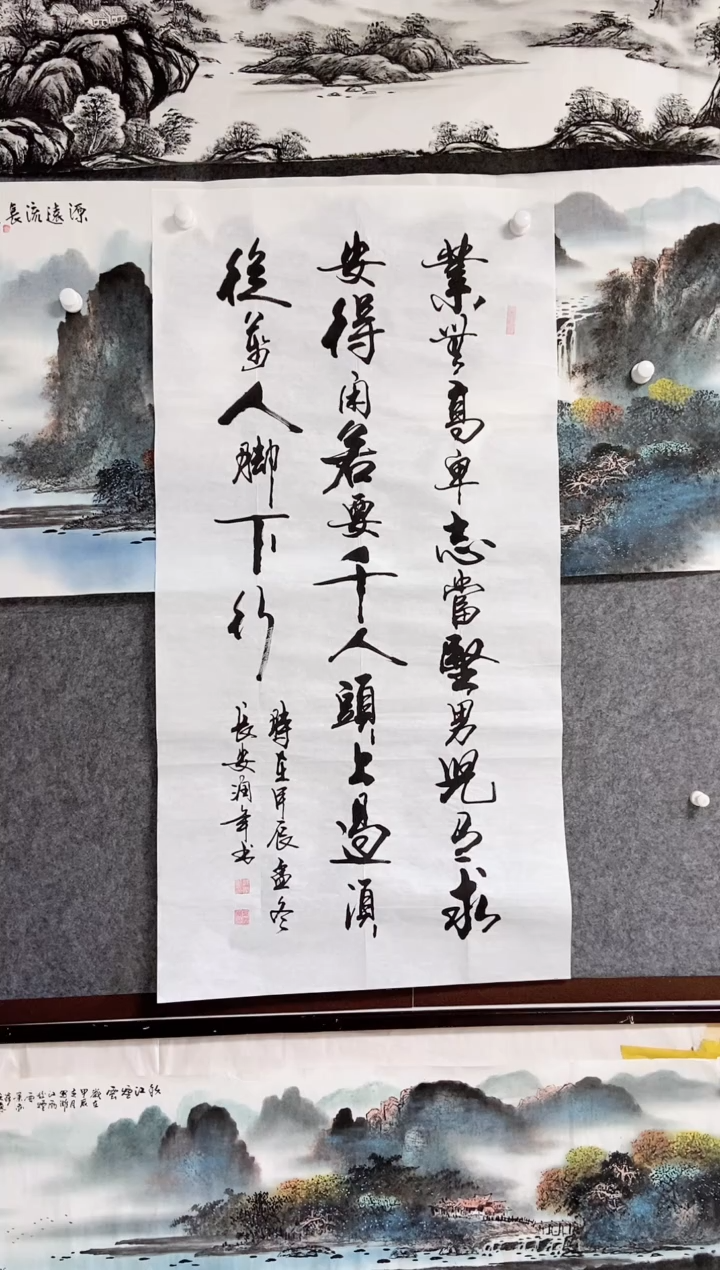 源遠流長
業無高卑志當堅男兒有求
安得闲若要千人頭上過須
從萬人脚下行
時在甲辰孟冬
長安潤年书
秋江煙雲